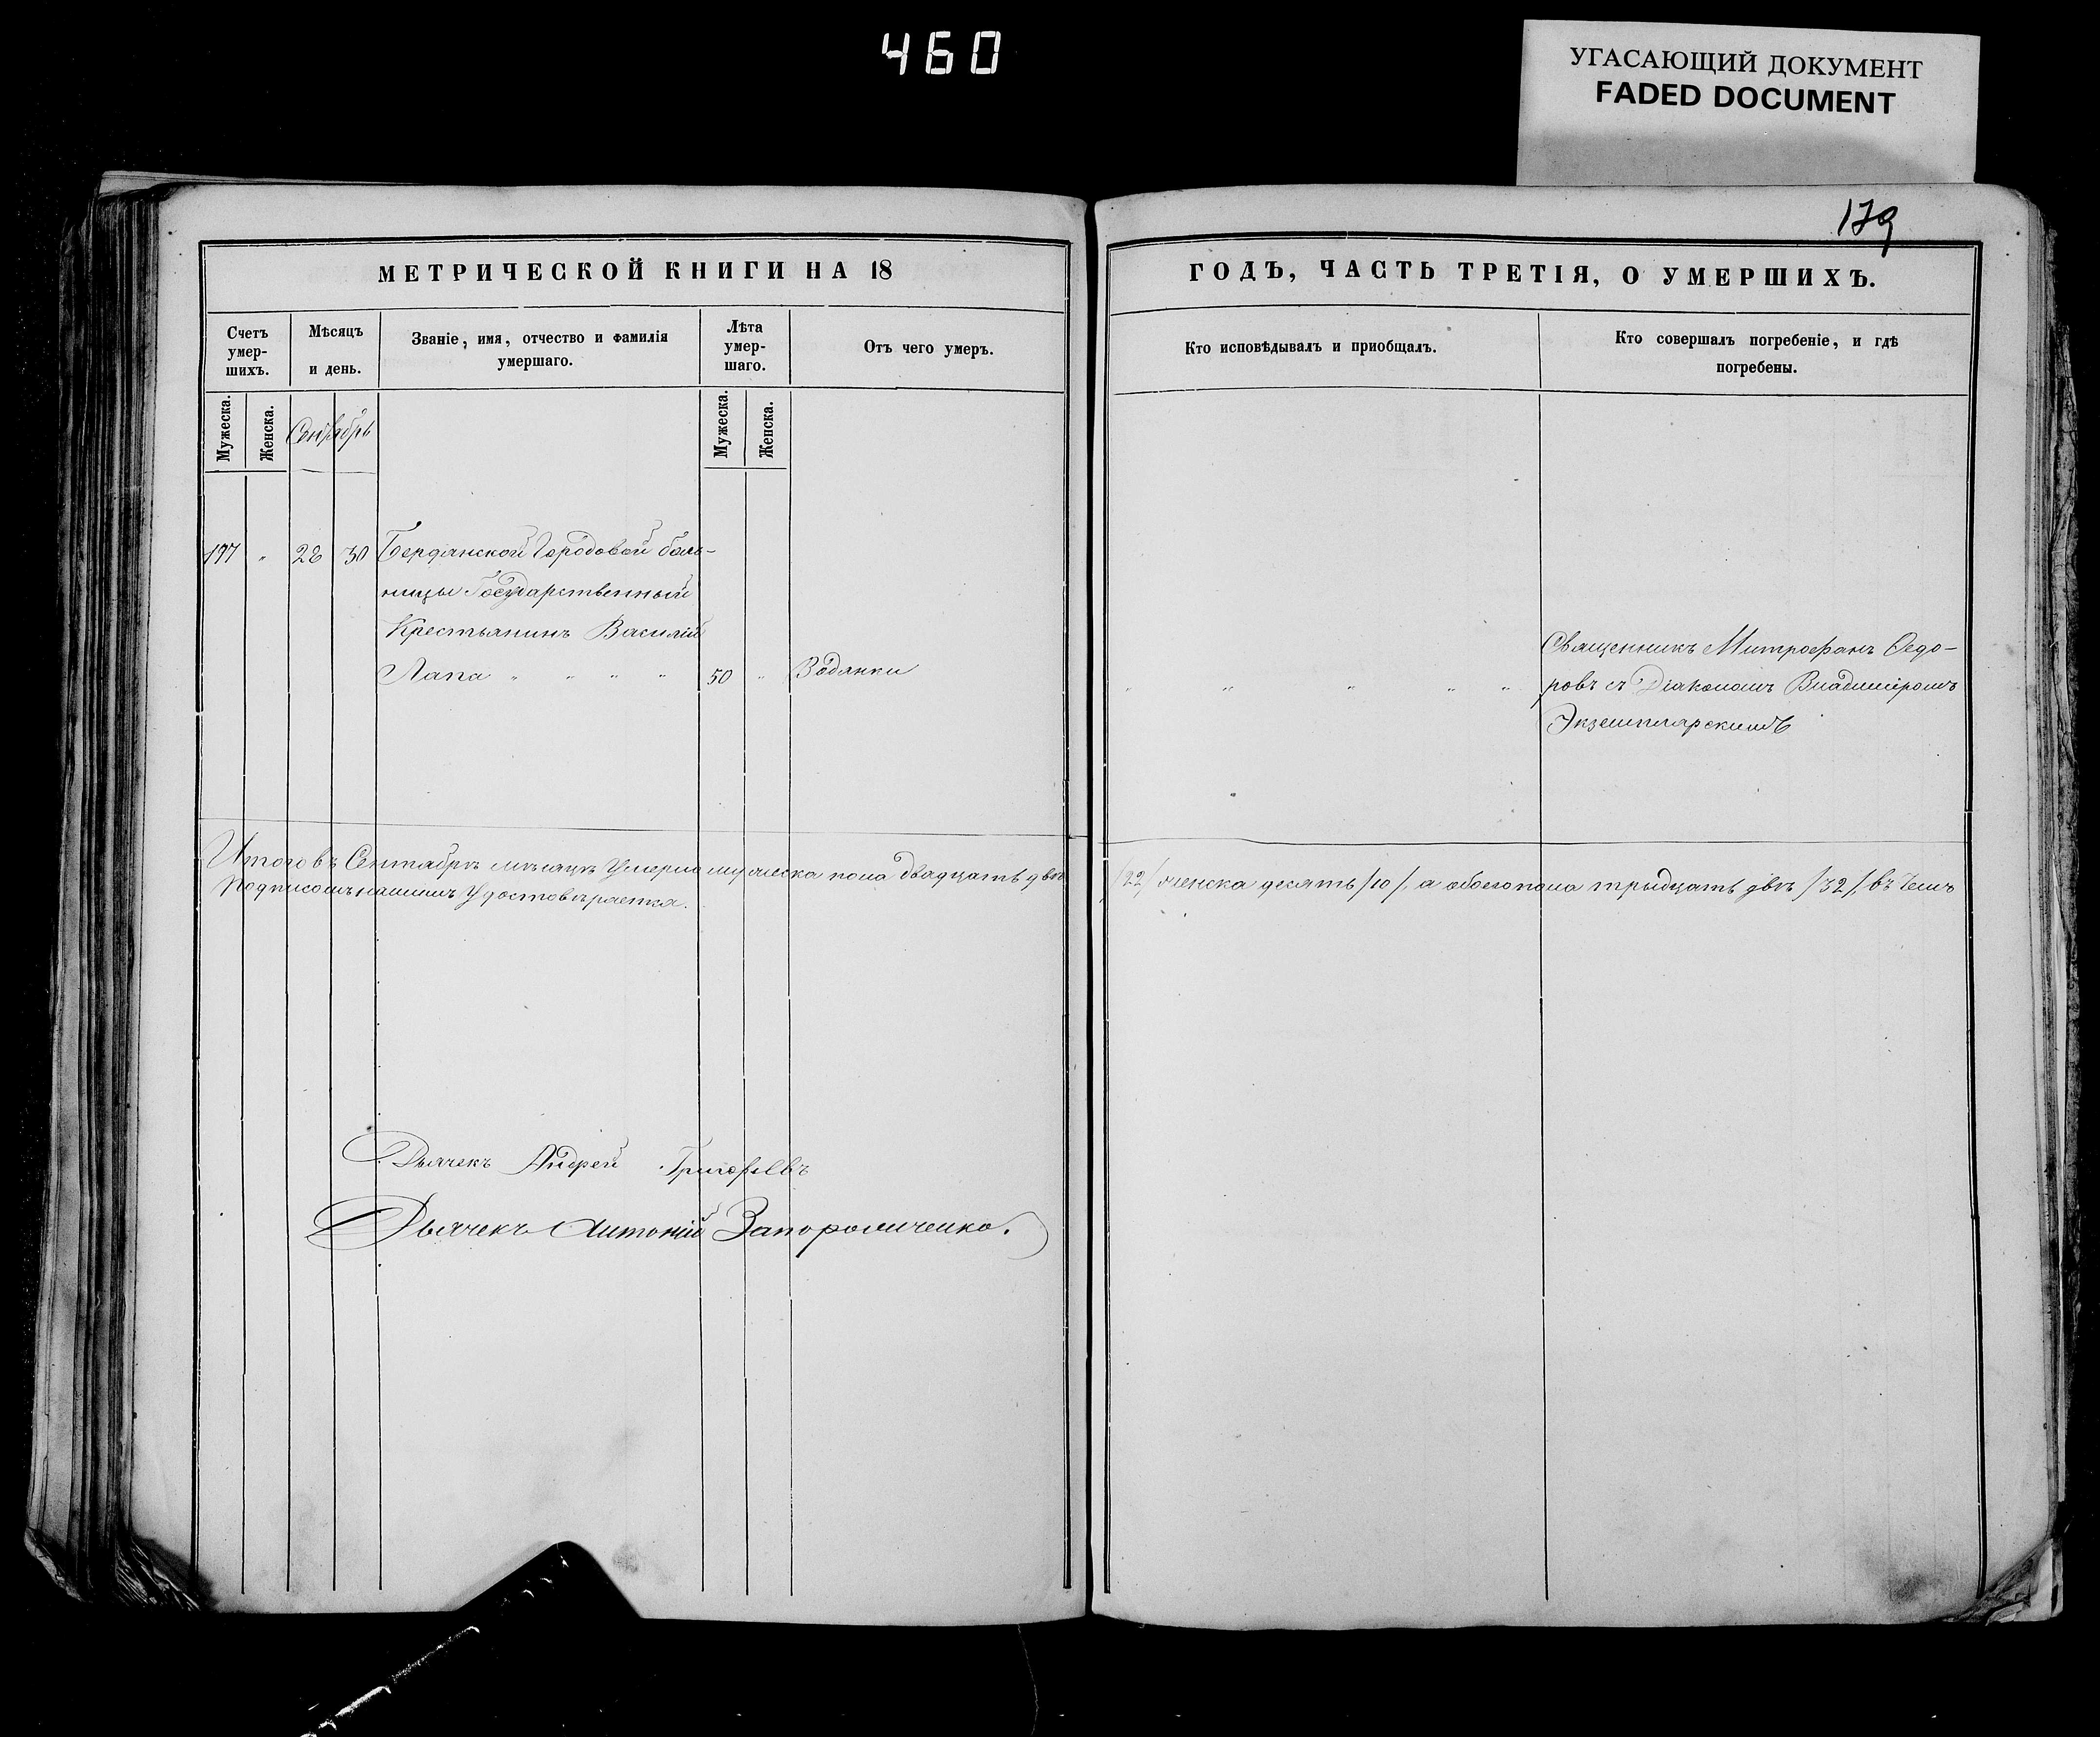 460
УГАСАЮЩИЙ ДОКУМЕНТ
FADED DOCUMENT
179
МЕТРИЧЕСКОЙ КНИГИ НА 18
Счетъ умер-шихъ.
Мѣсяцъ и день.
Званіе, имя, отчество и фамилія умершаго.
Лѣта умер-шаго.
Отъ чего умеръ.
Мужеска.
Женска.
Сентябрь
Мужеска.
Женска.
197 " 28 30 Бердянской Городовой боль-
ницы Государственный
Крестьянинъ Василій
Лапа " " " " 50 " Водянки
Итого въ Сентябрѣ мѣсяцѣ Умерло мужеска пола двадцать два
подписомъ нашимъ Удостовѣряемся.
Дьячекъ Андрей Григорьевъ
Дьячекъ Антоній Запорожченко.
ГОДЪ, ЧАСТЬ ТРЕТІЯ, О УМЕРШИХЪ.
Кто исповѣдывалъ и пріобщалъ.
Кто совершалъ погребеніе, и гдѣ погребены.
Священникъ Митрофанъ Ѳедо-
" " " " " ровъ съ Діакономъ Владиміромъ
Экземплярскимъ
/22/ женска десять /10/, а обоего пола трыдцать двѣ /32/, въ чемъ